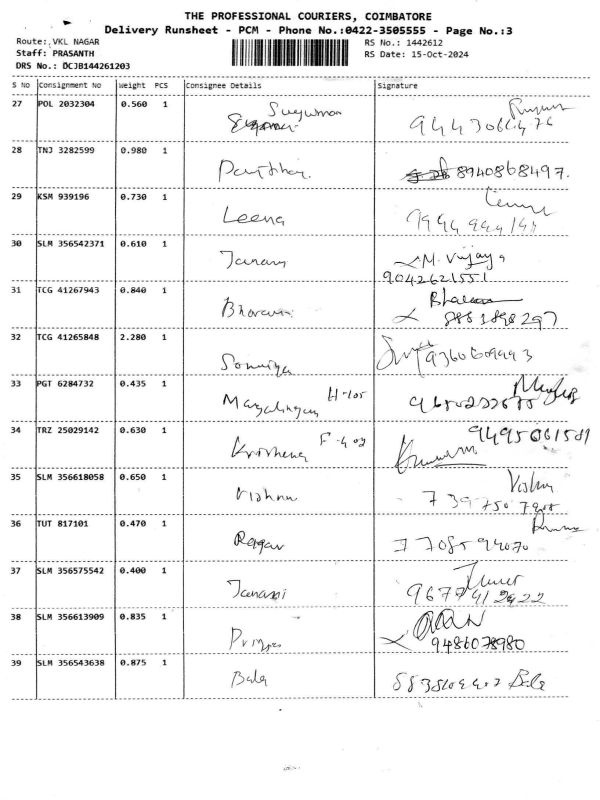 THE PROFESSIONAL COURIERS, COIMBATORE
Delivery Runsheet - PCM - Phone No.:0422-3505555 - Page No.:3
Route: VKL NAGAR
RS No.: 1442612
Staff: PRASANTH
RS Date: 15-Oct-2024
DRS No.: DCJB144261203
S No Consignment No Weight PCS Consignee Details Signature
27 POL 2032304 0.560 1
28 TNJ 3282599 0.980 1 8940868497.
29 KSM 939196 0.730 1 Leena
30 SLM 356542371 0.610 1 Janany M. Vijaya
9042621551
31 TCG 41267943 0.840 1
32 TCG 41265848 2.280 1
33 PGT 6284732 0.435 1 H-105
34 TRZ 25029142 0.630 1 Krishena
35 SLM 356618058 0.650 1 Vishnu Vishnu
36 TUT 817101 0.470 1 Ragav
37 SLM 356575542 0.400 1 Janani
38 SLM 356613909 0.835 1
9486078980
39 SLM 356543638 0.875 1 Bala Bala